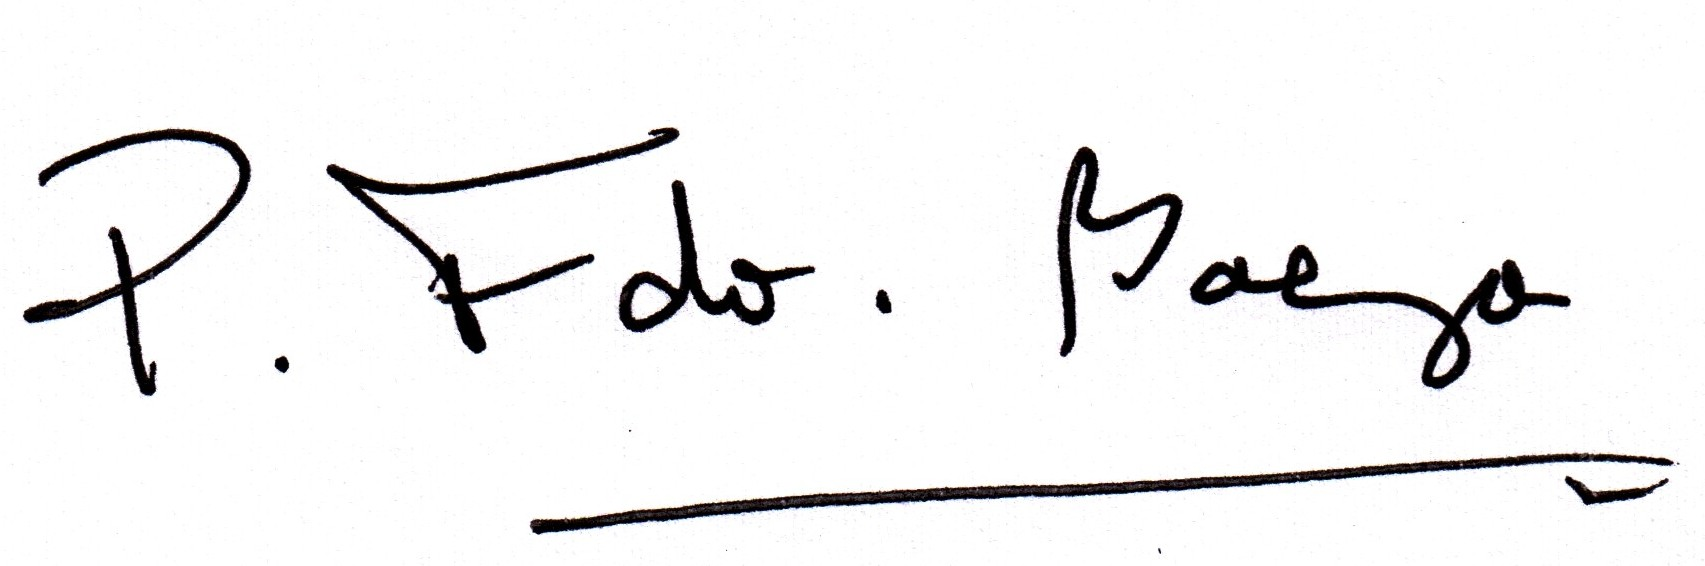 P. Fdo. Baeza